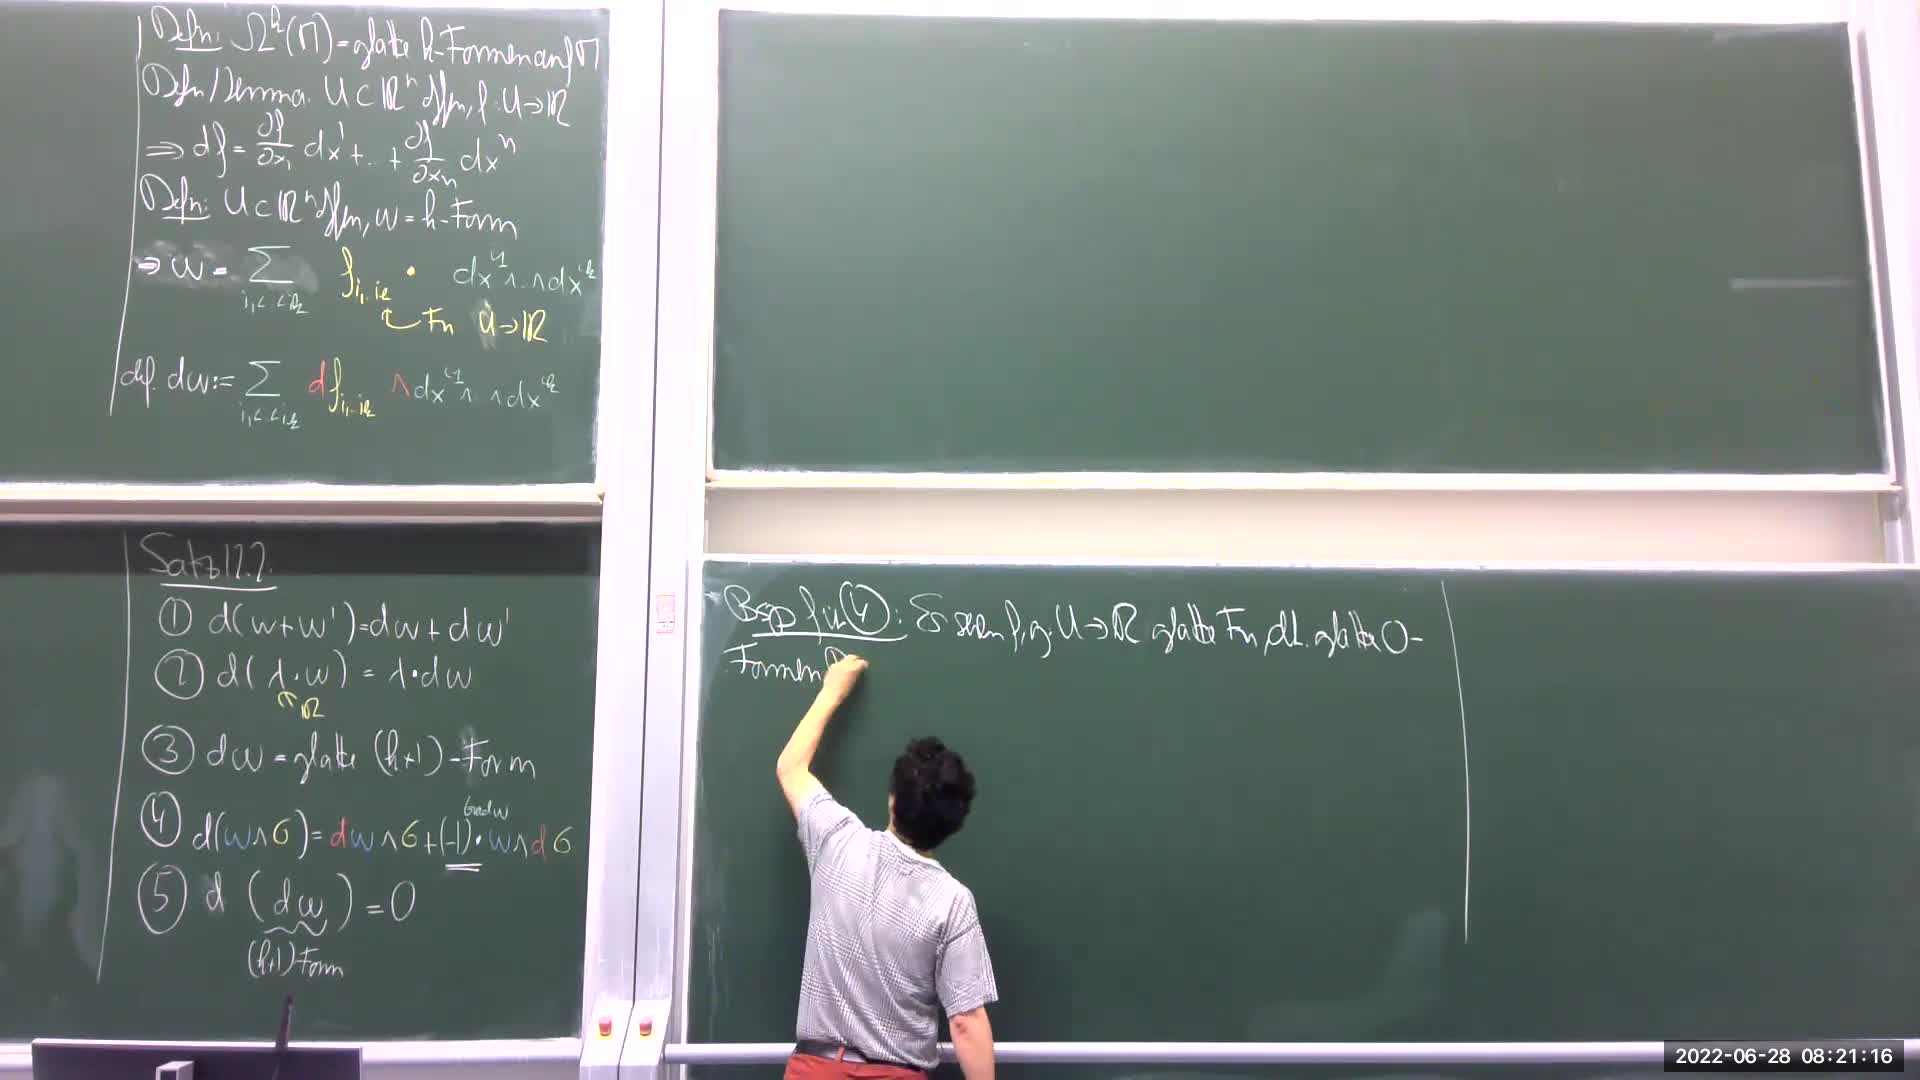 Defn: Ω^k(M) = glatte k-Formen auf M
Defn/Lemma. U ⊂ ℝ^n offen, f: U → ℝ
⇒ df = ∂f/∂x_1 dx^1 + .. + ∂f/∂x_n dx^n
Defn: U ⊂ ℝ^n offen, ω = k-Form
⇒ ω = Σ_{i_1<..<i_k} f_{i_1..i_k} · dx^{i_1} ∧..∧ dx^{i_k}
Fn U → ℝ
def. dω := Σ_{i_1<..<i_k} df_{i_1..i_k} ∧ dx^{i_1} ∧..∧ dx^{i_k}
Satz 17.2.
① d(ω+ω') = dω + dω'
② d(λ·ω) = λ·dω
ℝ
③ dω = glatte (k+1)-Form
④ d(ω∧σ) = dω∧σ + (-1)^{Grad ω} · ω∧dσ
⑤ d(dω) = 0
(k+1)-Form
Bsp für ④: Es seien f, g: U → ℝ glatte Fn, d.h. glatte 0-
Formen
2022-06-28 08:21:16